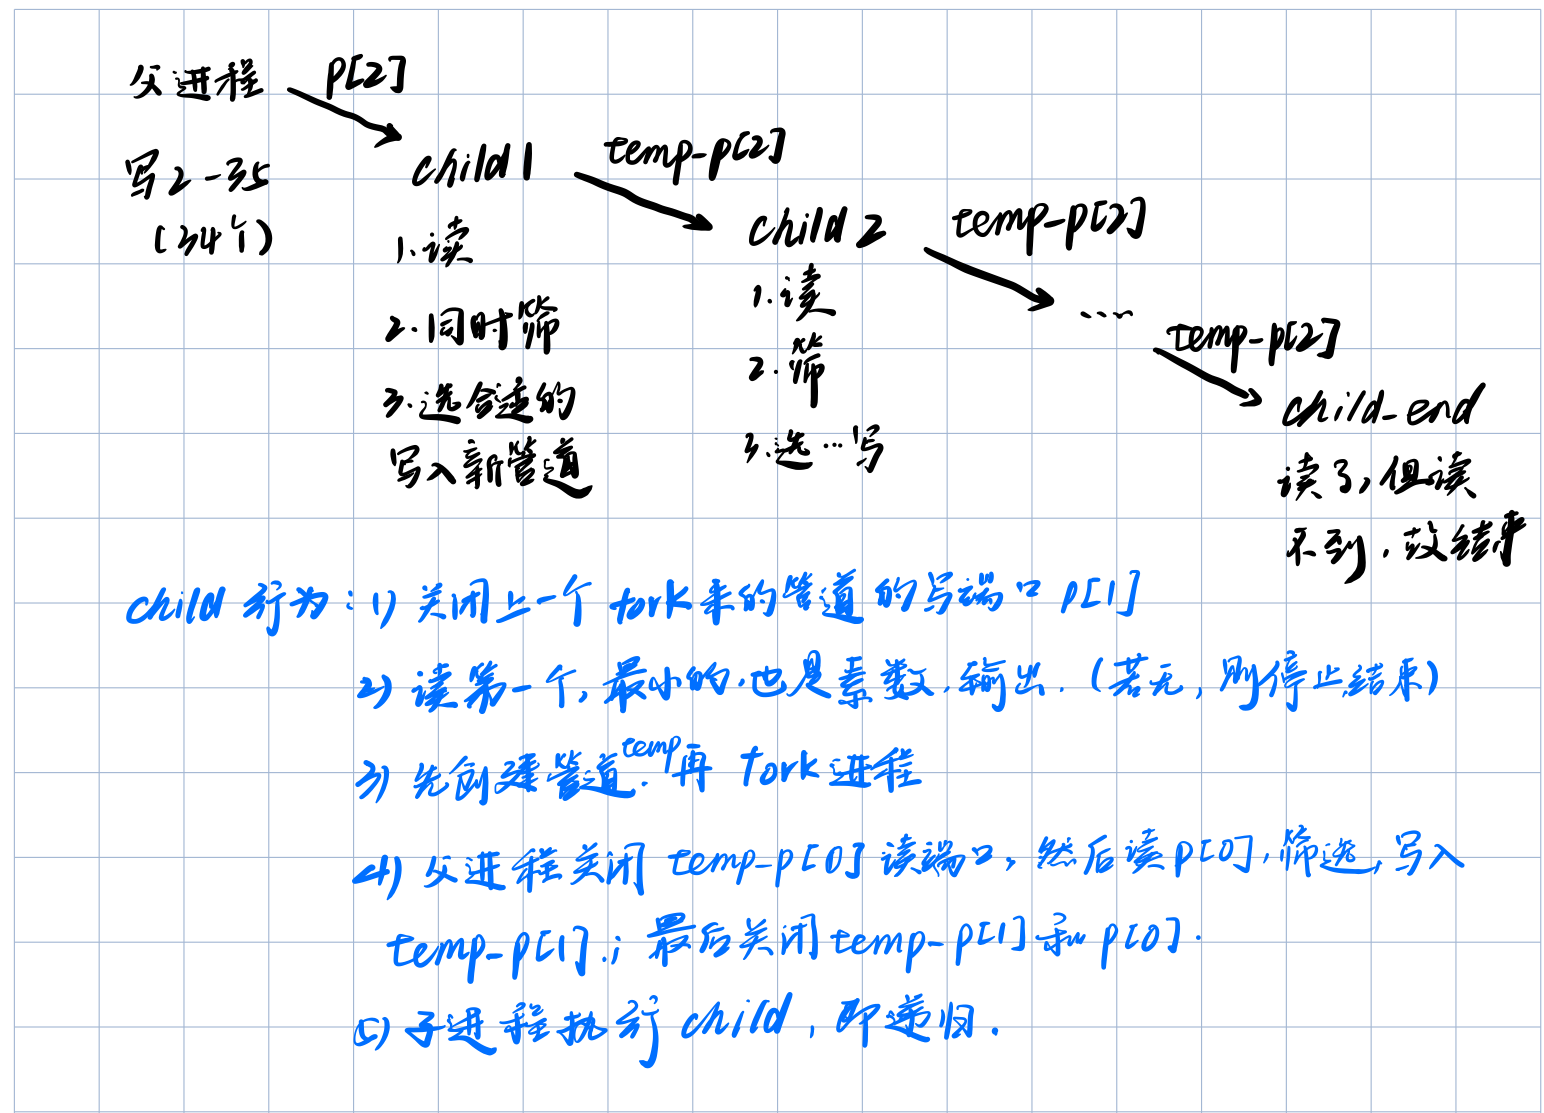 父进程 p[2]
写2-35
(34个)
child1 temp-p[2]
1.读
2.同时筛
3.选合适的
写入新管道
child 2 temp-p[2]
1.读
2.筛
3.选…写
…
temp-p[2]
child-end
读了,但读
不到,故结束
child 行为:1) 关闭上一个 fork来的管道的写端口 p[1]
2) 读第一个,最小的,也是素数,输出.(若无,则停止结束)
3) 先创建管道temp.再 fork进程
4) 父进程关闭 temp-p[0]读端口,然后读p[0],筛选,写入
temp-p[1].;最后关闭temp-p[1]和p[0].
5) 子进程执行 child,即递归.